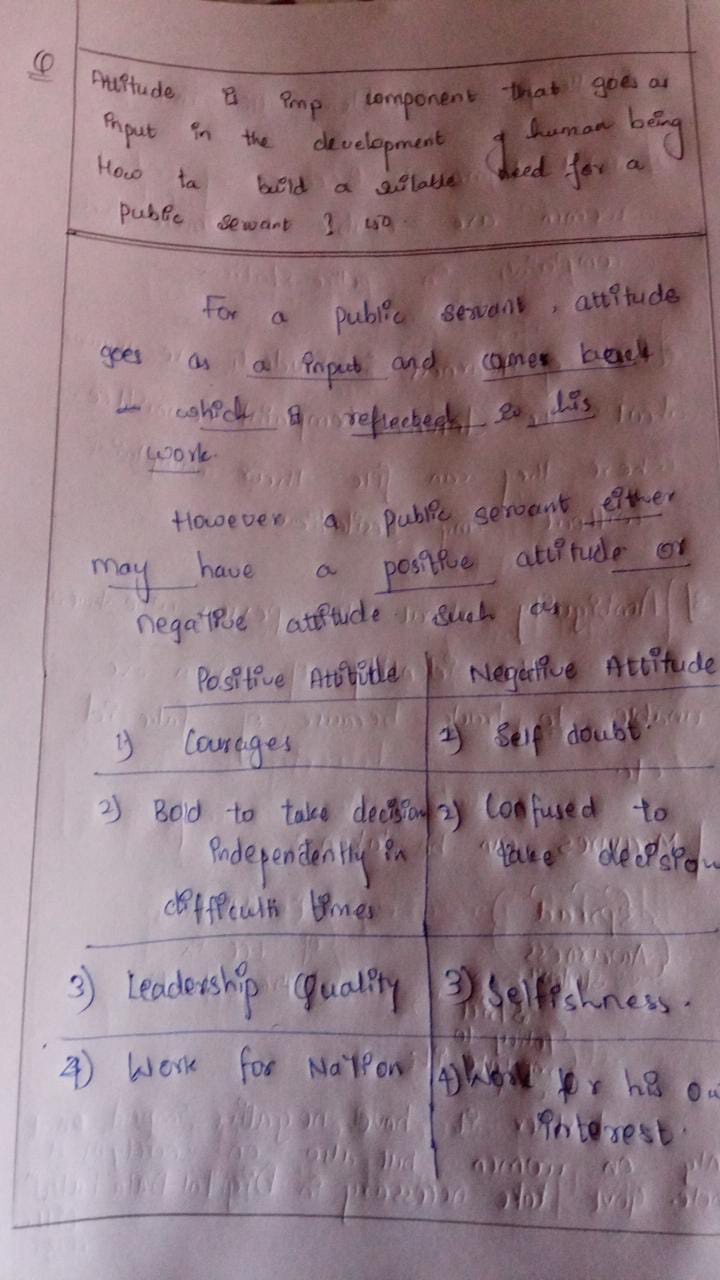 Q
Attitude is imp component that goes as
input in the development of human being
How to build a suitable need for a
public servant ? 150
For a public servant, attitude
goes as a input and comes back
which is reflected in his
work.
However a public servant either
may have a positive attitude or
negative attitude such as
Positive Attitude | Negative Attitude
1) Courages | 1) Self doubt.
2) Bold to take decision | 2) Confused to
independently in | take decision
difficult times
3) Leadership Quality | 3) Selfishness.
4) Work for Nation | 4) Work for his ow
interest.